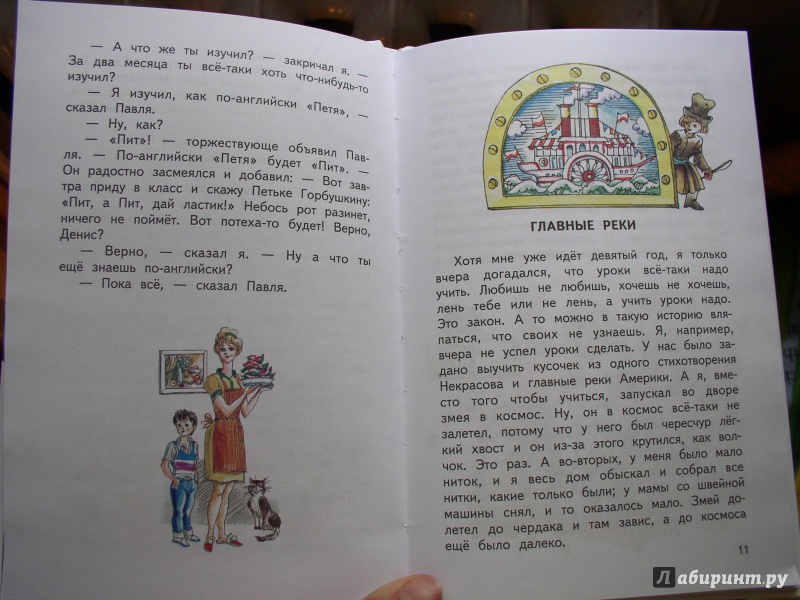 — А что же ты изучил? — закричал я. —
За два месяца ты всё-таки хоть что-нибудь-то
изучил?
— Я изучил, как по-английски «Петя», —
сказал Павля.
— Ну, как?
— «Пит»! — торжествующе объявил Пав-
ля. — По-английски «Петя» будет «Пит». —
Он радостно засмеялся и добавил: — Вот зав-
тра приду в класс и скажу Петьке Горбушкину:
«Пит, а Пит, дай ластик!» Небось рот разинет,
ничего не поймёт. Вот потеха-то будет! Верно,
Денис?
— Верно, — сказал я. — Ну а что ты
ещё знаешь по-английски?
— Пока всё, — сказал Павля.
ГЛАВНЫЕ РЕКИ
Хотя мне уже идёт девятый год, я только
вчера догадался, что уроки всё-таки надо
учить. Любишь не любишь, хочешь не хочешь,
лень тебе или не лень, а учить уроки надо.
Это закон. А то можно в такую историю вля-
паться, что своих не узнаешь. Я, например,
вчера не успел уроки сделать. У нас было за-
дано выучить кусочек из одного стихотворения
Некрасова и главные реки Америки. А я, вме-
сто того чтобы учиться, запускал во дворе
змея в космос. Ну, он в космос всё-таки не
залетел, потому что у него был чересчур лёг-
кий хвост и он из-за этого крутился, как вол-
чок. Это раз. А во-вторых, у меня было мало
ниток, и я весь дом обыскал и собрал все
нитки, какие только были; у мамы со швейной
машины снял, и то оказалось мало. Змей до-
летел до чердака и там завис, а до космоса
ещё было далеко.
11
Лабиринт.ру